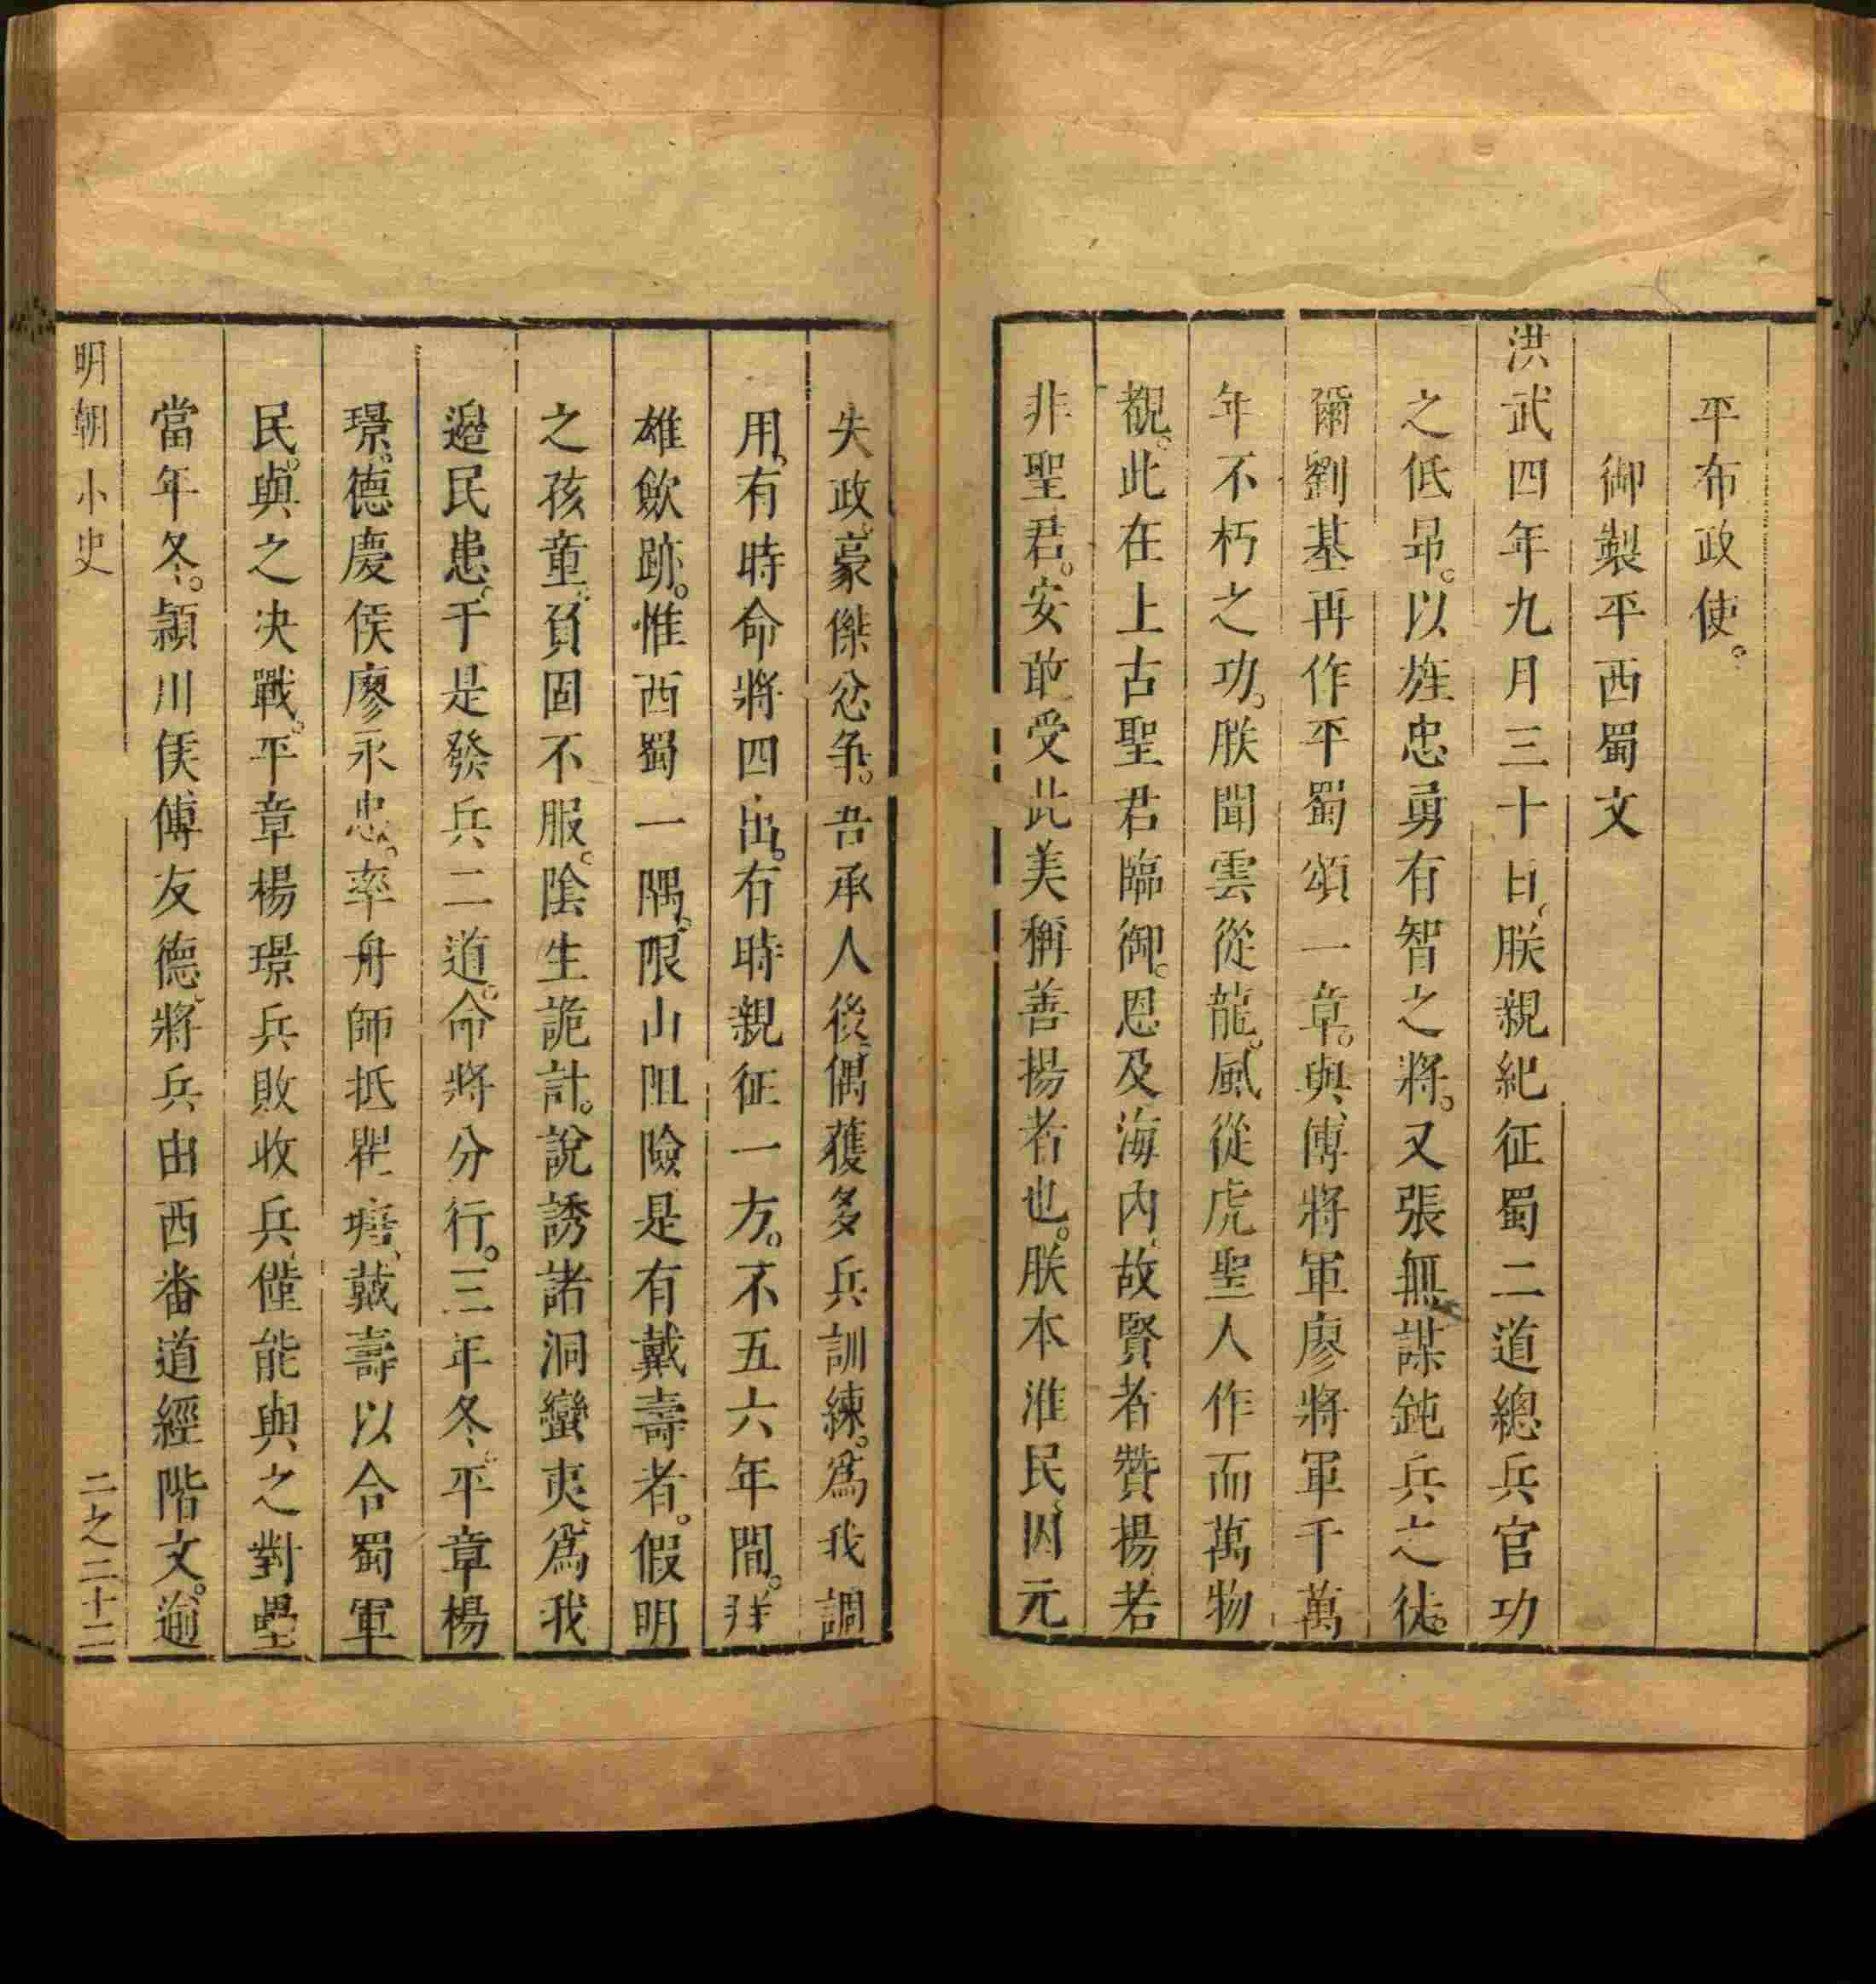 平布政使。
御製平西蜀文
洪武四年九月三十日、朕親紀征蜀二道總兵官功
之低昻。以旌忠勇有智之將。又張無謀鈍兵之徒。
爾劉基再作平蜀頌一章。與傅將軍廖將軍千萬
年不朽之功。朕聞雲從龍。風從虎聖人作而萬物
覩。此在上古聖君臨御。恩及海內、故賢者贊揚若
非聖君。安敢受此美稱善揚者也。朕本淮民、因元
失政、豪傑忿爭。吾承人後、偶獲多兵訓練。爲我調
用。有時命將四出。有時親征一方。不五六年間。羣
雄歛跡。惟西蜀一隅。限山阻險是有戴壽者。假明
之孩童。負固不服。陰生詭計。說誘諸洞蠻夷、爲我
邉民患、于是發兵二道。命將分行。三年冬。平章楊
璟。德慶侯廖永忠。率舟師抵瞿塘、戴壽以合蜀軍
民。與之决戰。平章楊璟兵敗收兵、僅能與之對壘
當年冬。潁川侯傅友德、將兵由西番道經階文。逾
明朝小史
二之二十二